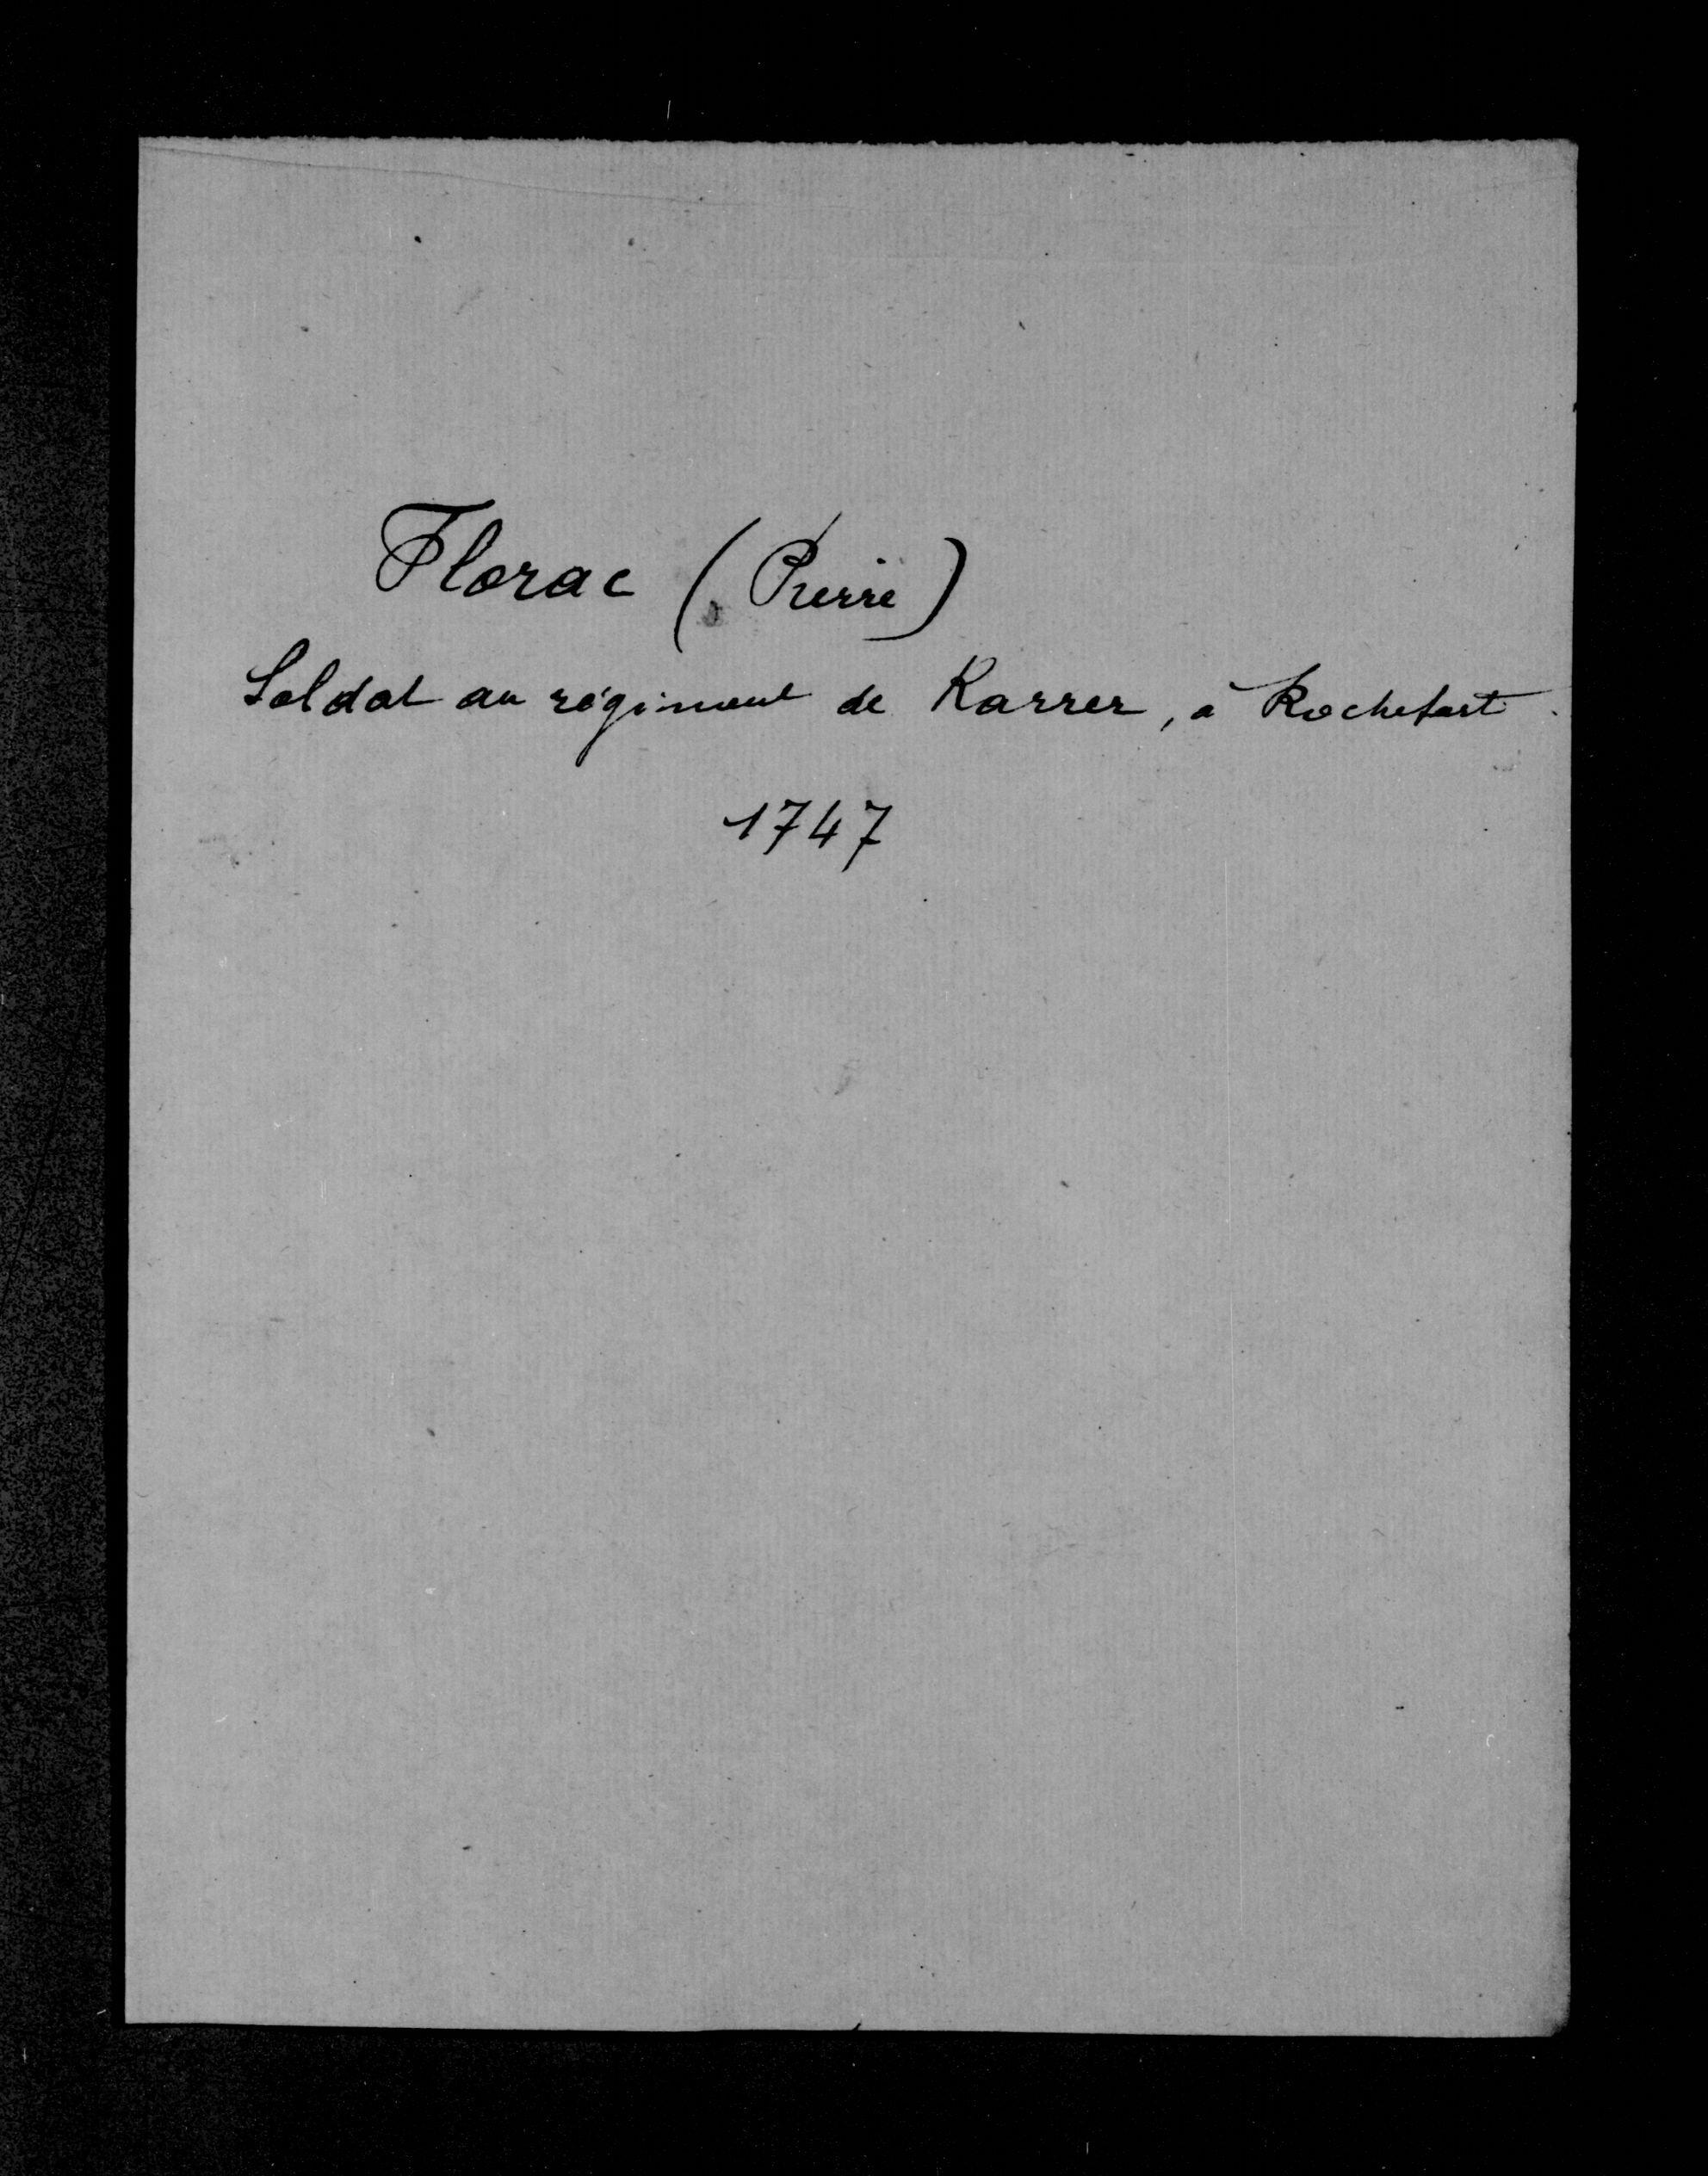 Florac (Pierre)
Soldat au régiment de Karrer, à Rochefort.
1747